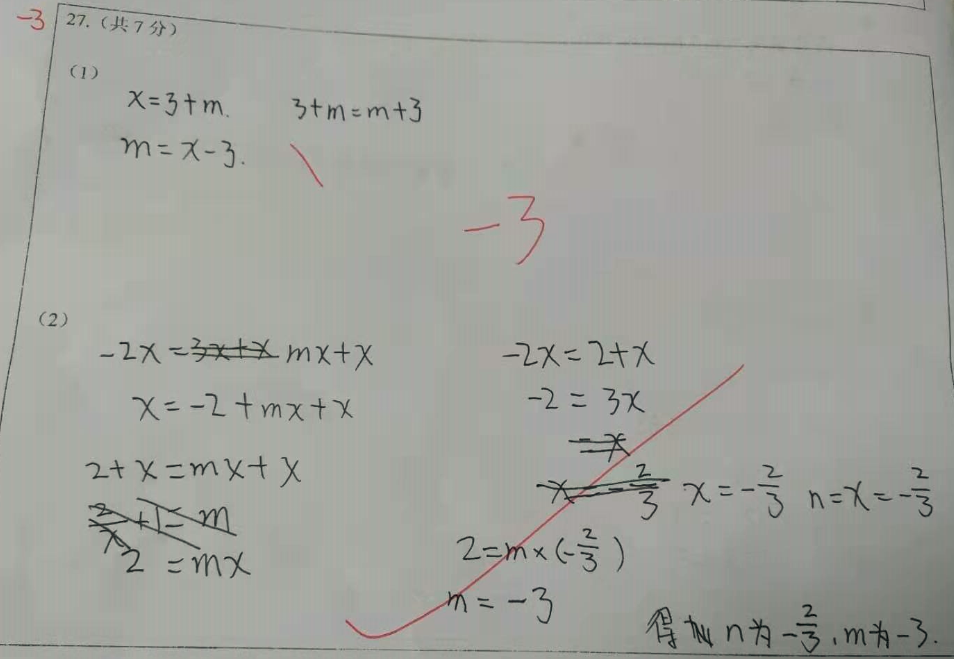 -3
27.（共7分）
（1）
x=3+m. 3+m=m+3
m=x-3.
-3
（2）
-2x=3x+x mx+x
x=-2+mx+x
2+x=mx+x
2/x+1=m
2=mx
-2x=2+x
-2=3x
=x
x=-2/3 x=-2/3 n=x=-2/3
2=m×(-2/3)
m=-3
得 n为-2/3,m为-3.